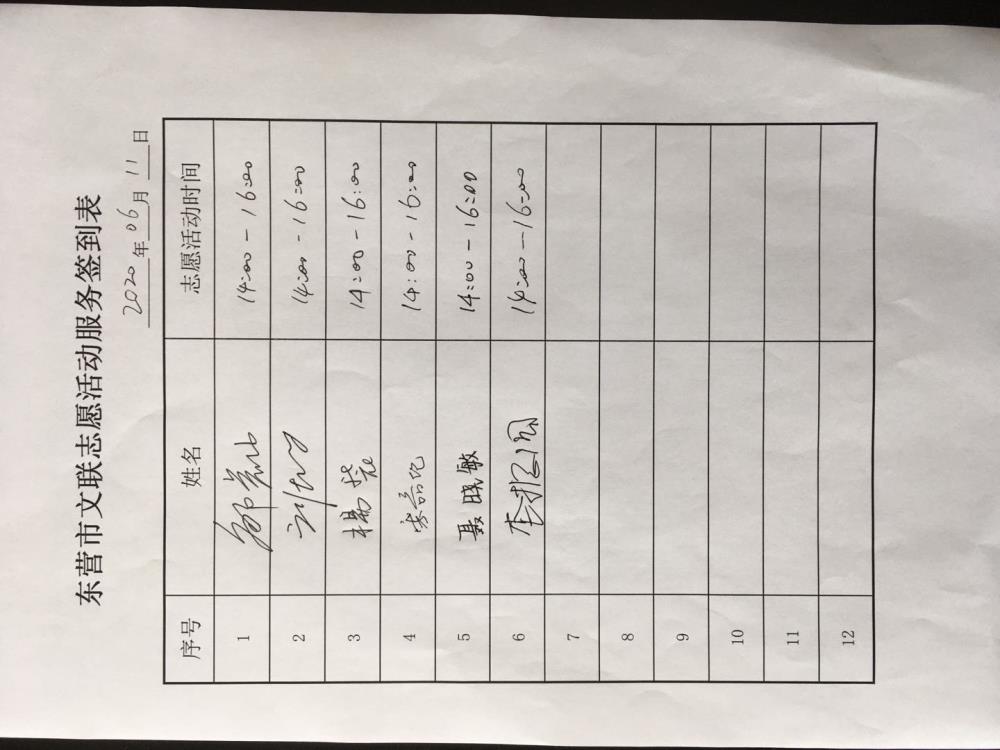 东营市文联志愿活动服务签到表
2020年06月11日
序号 姓名 志愿活动时间
1 14:00-16:00
2 14:00-16:00
3 杨 14:00-16:00
4 14:00-16:00
5 聂晓敏 14:00-16:00
6 李 14:00-16:00
7
8
9
10
11
12